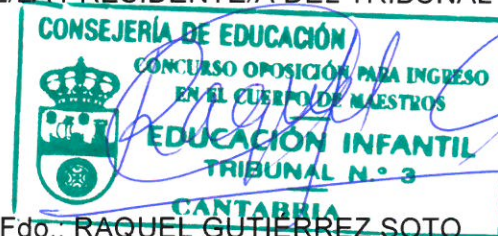 PRESIDENTE/A DEL TRIBUNAL
CONSEJERÍA DE EDUCACIÓN
CONCURSO OPOSICIÓN PARA INGRESO
EN EL CUERPO DE MAESTROS
EDUCACIÓN INFANTIL
TRIBUNAL N.º 3
CANTABRIA
Fdo.: RAQUEL GUTIÉRREZ SOTO